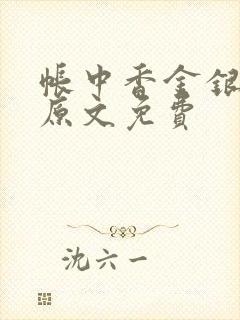 帐中香金银
原文免费
沈六一